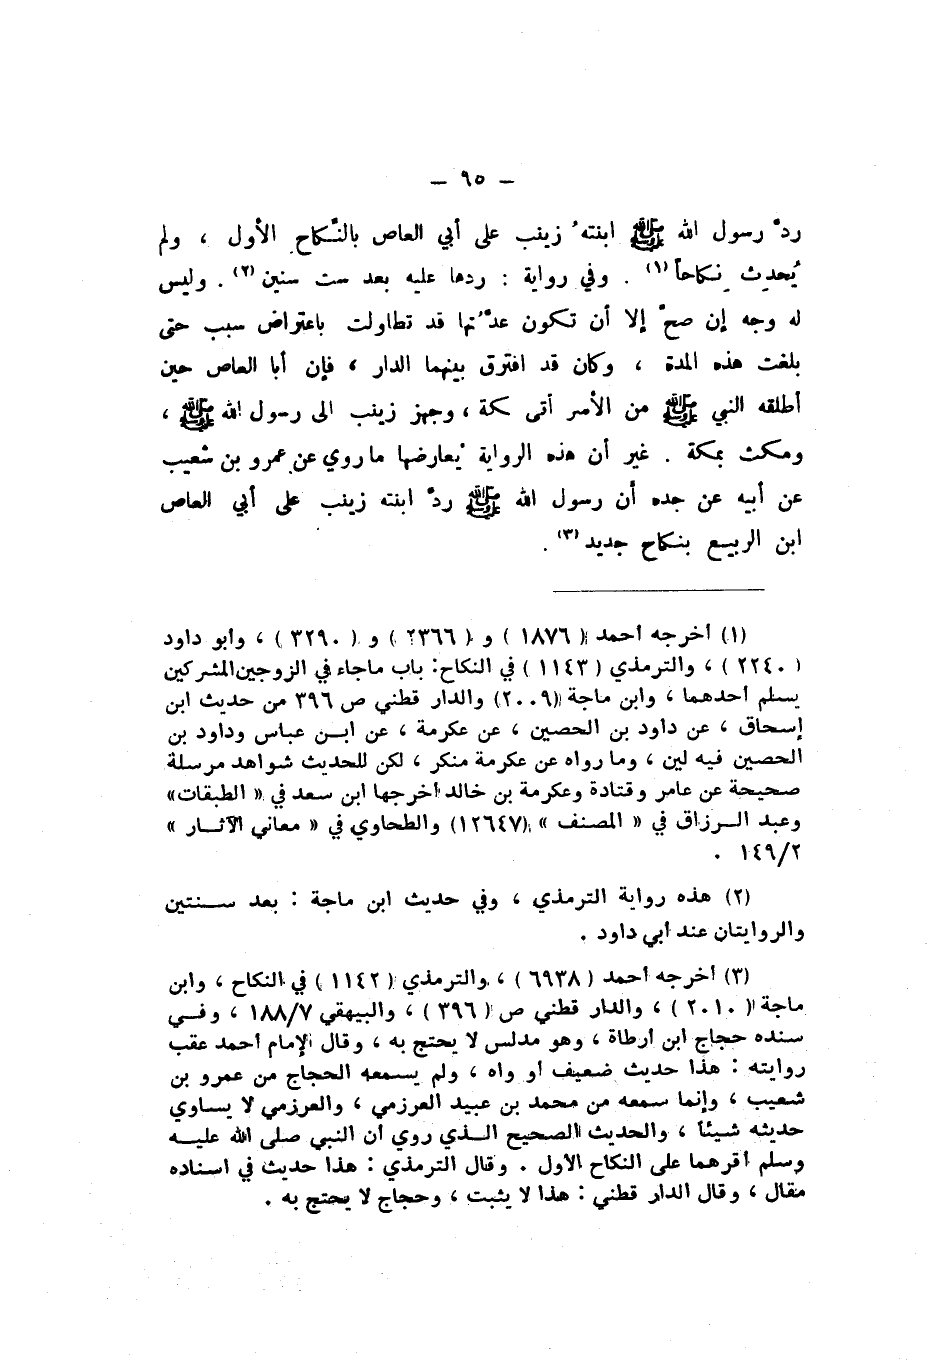 — ٩٥ —
ردّ رسول الله ﷺ ابنتهُ زينب على أبي العاص بالنِّكاح الأول ، ولم
يُحدِث نِكاحاً (١) . وفي رواية : ردها عليه بعد ست سنين (٢) . وليس
له وجه إن صحّ إلا أن تكون عدّتُها قد تطاولت باعتراض سبب حتى
بلغت هذه المدة ، وكان قد افترق بينهما الدار ، فإن أبا العاص حين
أطلقه النبي ﷺ من الأسر أتى مكة ، وجهز زينب الى رسول الله ﷺ ،
ومكث بمكة . غير أن هذه الرواية يُعارضها ما روي عن عمرو بن شعيب
عن أبيه عن جده أن رسول الله ﷺ ردّ ابنته زينب على أبي العاص
ابن الربيع بنكاح جديد (٣) .
(١) أخرجه أحمد ( ١٨٧٦ ) و ( ٢٣٦٦ ) و ( ٣٢٩٠ ) ، وأبو داود
( ٢٢٤٠ ) ، والترمذي ( ١١٤٣ ) في النكاح : باب ماجاء في الزوجين المشركين
يسلم أحدهما ، وابن ماجة (٢٠٠٩) والدار قطني ص ٣٩٦ من حديث ابن
إسحاق ، عن داود بن الحصين ، عن عكرمة ، عن ابن عباس وداود بن
الحصين فيه لين ، وما رواه عن عكرمة منكر ، لكن للحديث شواهد مرسلة
صحيحة عن عامر وقتادة وعكرمة بن خالد أخرجها ابن سعد في « الطبقات»
وعبد الرزاق في « المصنف » (١٢٦٤٧) والطحاوي في « معاني الآثار »
١٤٩/٢ .
(٢) هذه رواية الترمذي ، وفي حديث ابن ماجة : بعد سنتين
والروايتان عند أبي داود .
(٣) أخرجه أحمد ( ٦٩٣٨ ) ، والترمذي ( ١١٤٢ ) في النكاح ، وابن
ماجة ( ٢٠١٠ ) ، والدار قطني ص ( ٣٩٦ ) ، والبيهقي ١٨٨/٧ ، وفي
سنده حجاج ابن أرطاة ، وهو مدلس لا يحتج به ، وقال الإمام أحمد عقب
روايته : هذا حديث ضعيف أو واه ، ولم يسمعه الحجاج من عمرو بن
شعيب ، وإنما سمعه من محمد بن عبيد العرزمي ، والعرزمي لا يساوي
حديثه شيئاً ، والحديث الصحيح الذي روي أن النبي صلى الله عليه
وسلم أقرهما على النكاح الأول . وقال الترمذي : هذا حديث في اسناده
مقال ، وقال الدار قطني : هذا لا يثبت ، وحجاج لا يحتج به .